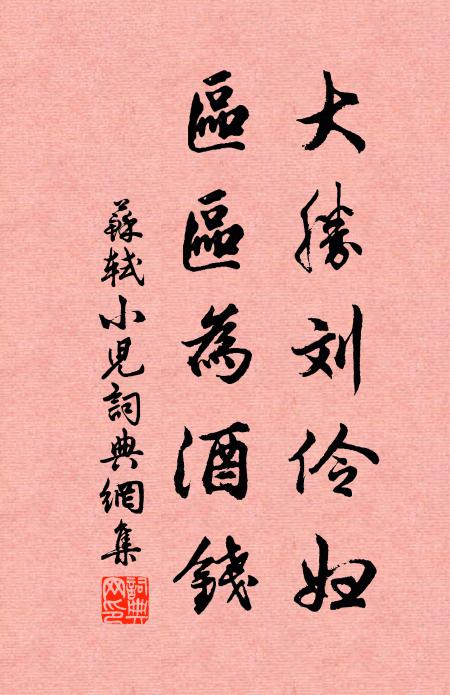 大勝刘伶妇
區區為酒錢
蘇軾小兒詞典網集
詞典网印